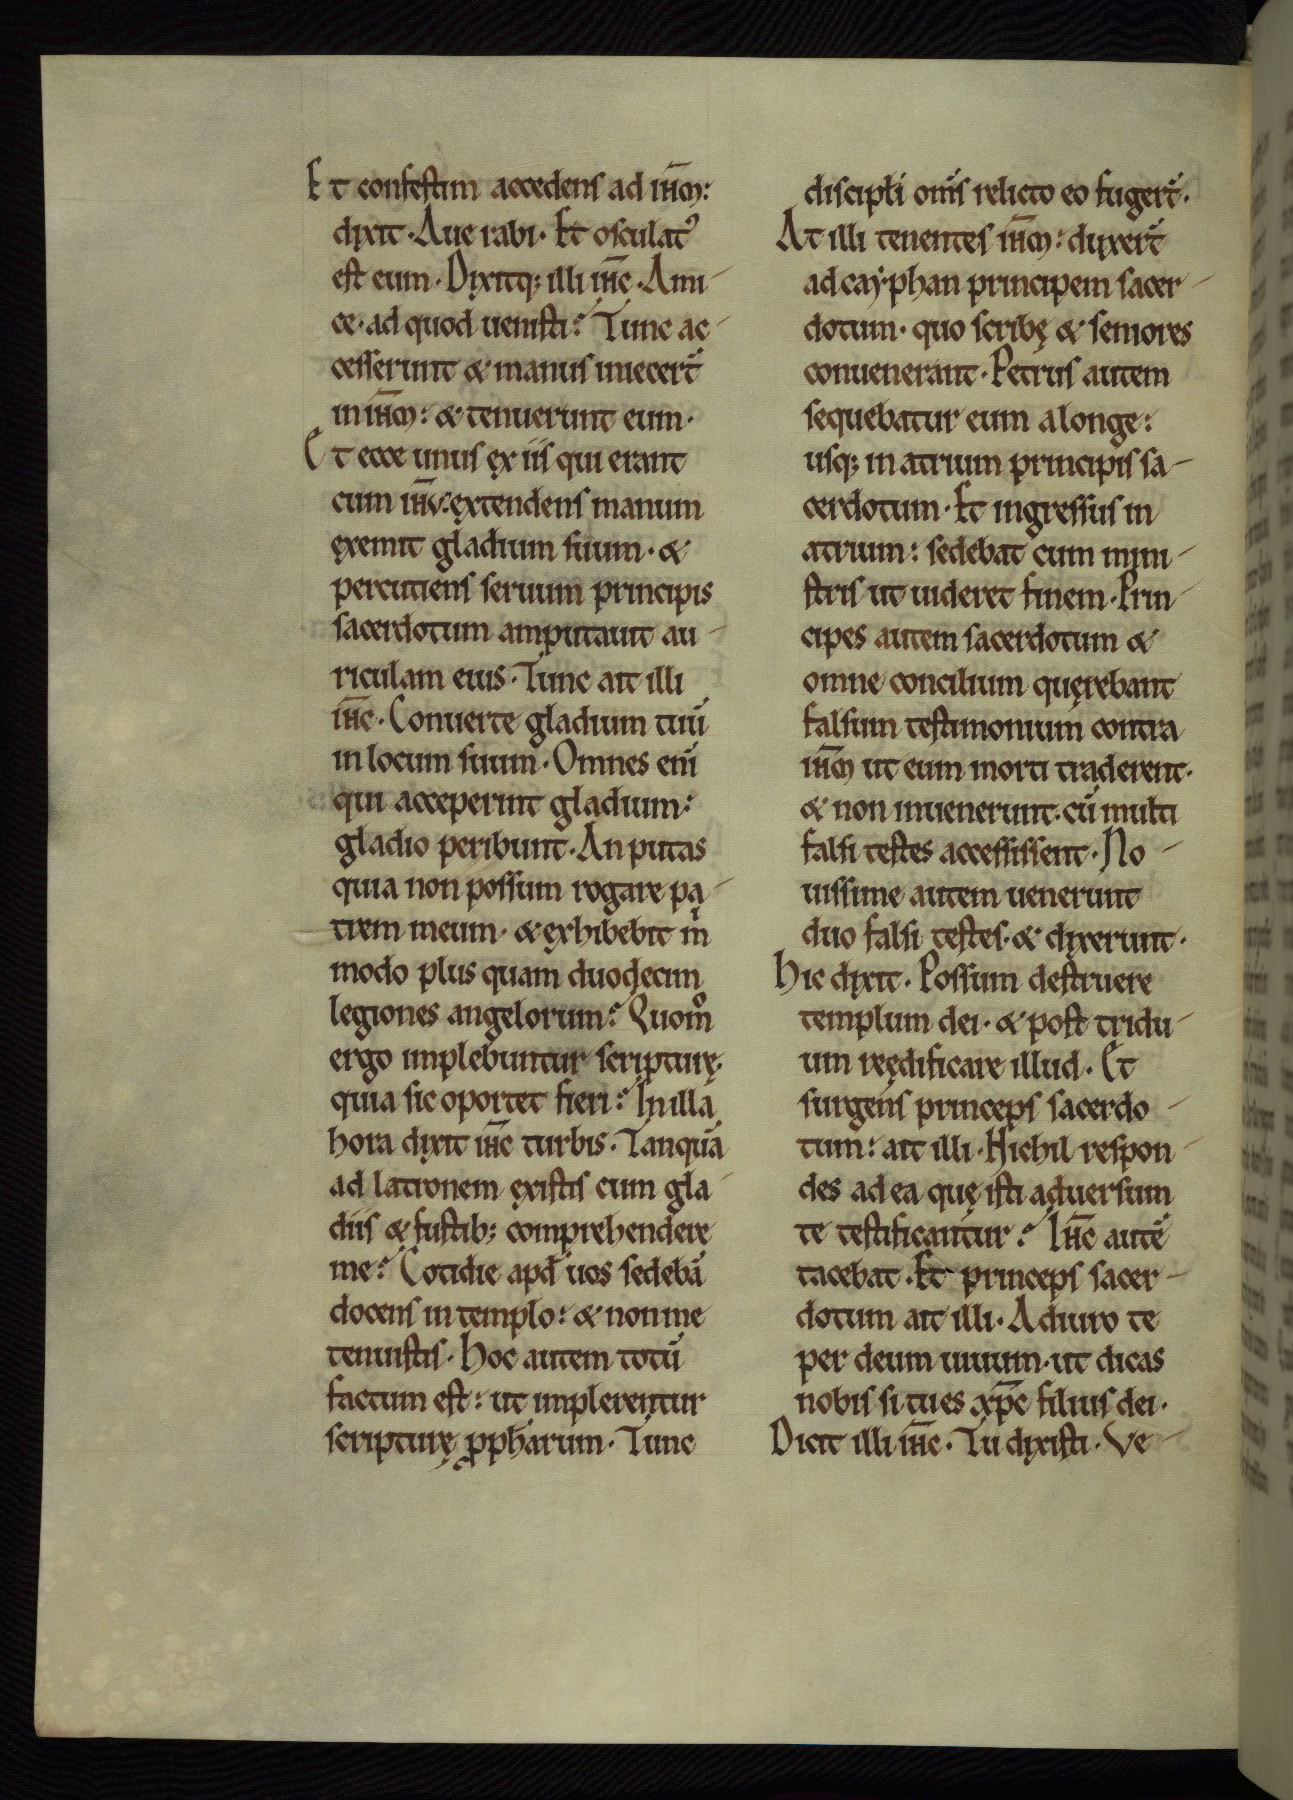 Et confestim accedens ad ihm̅:
dixit. Aue rabi. Et osculat᷒
est eum. Dixitq; illi ihc̅. Ami-
ce. ad quod uenisti? Tunc ac-
cesserunt & manus iniecer̅t
in ihm̅: & tenuerunt eum.
Et ecce unus ex iis qui erant
cum ihu̅: extendens manum
exemit gladium suum. &
percutiens seruum principis
sacerdotum amputauit au-
riculam eius. Tunc ait illi
ihc̅. Conuerte gladium tuu̅
in locum suum. Omnes eni̅
qui acceperint gladium:
gladio peribunt. An putas
quia non possum rogare pa-
trem meum. & exhibebit m̅
modo plus quam duodecim
legiones angelorum? Quom̊
ergo implebuntur scripturę.
quia sic oportet fieri? In illa
hora dixit ihc̅ turbis. Tanqua̅
ad latronem existis cum gla-
diis & fustib; comprehendere
me? Cotidie apd̅ uos sedeba̅
docens in templo: & non me
tenuistis. Hoc autem totu̅
factum est: ut implerentur
scripturę ꝓph̅arum. Tunc
discipl̅i om̅s relicto eo fuger̅t.
At illi tenentes ihm̅: duxer̅t
ad cayphan principem sacer-
dotum. quo scribę & seniores
conuenerant. Petrus autem
sequebatur eum a longe:
usq; in atrium principis sa-
cerdotum. Et ingressus in
atrium: sedebat cum mini-
stris ut uideret finem. Prin-
cipes autem sacerdotum &
omne concilium quęrebant
falsum testimonium contra
ihm̅ ut eum morti traderent.
& non inuenerunt. cu̅ multi
falsi testes accessissent. No-
uissime autem uenerunt
duo falsi testes. & dixerunt.
Hic dixit. Possum destruere
templum dei. & post tridu-
um reędificare illud. Et
surgens princeps sacerdo-
tum: ait illi. Nichil respon-
des ad ea quę isti aduersum
te testificantur? Ihc̅ aute̅
tacebat. Et princeps sacer-
dotum ait illi. Adiuro te
per deum uiuum. ut dicas
nobis si tu es xpc̅ filius dei.
Dicit illi ihc̅. Tu dixisti. Ve-